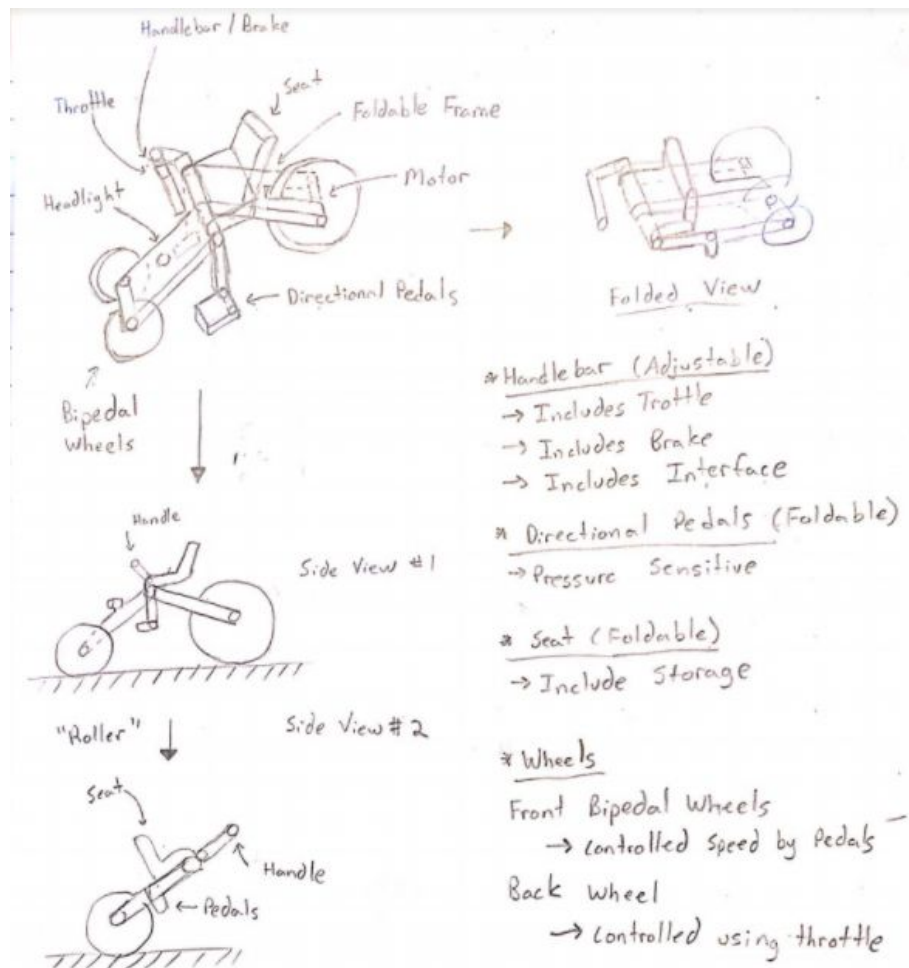 Handlebar / Brake
Throttle
Seat
Foldable Frame
Motor
Headlight
Directional Pedals
Bipedal
Wheels
Folded View
Handle
Side View #1
"Roller"
Side View #2
Seat
Handle
Pedals
* Handlebar (Adjustable)
→ Includes Trottle
→ Includes Brake
→ Includes Interface
* Directional Pedals (Foldable)
→ Pressure Sensitive
* Seat (Foldable)
→ Include Storage
* Wheels
Front Bipedal Wheels
→ Controlled Speed by Pedals
Back Wheel
→ Controlled using throttle